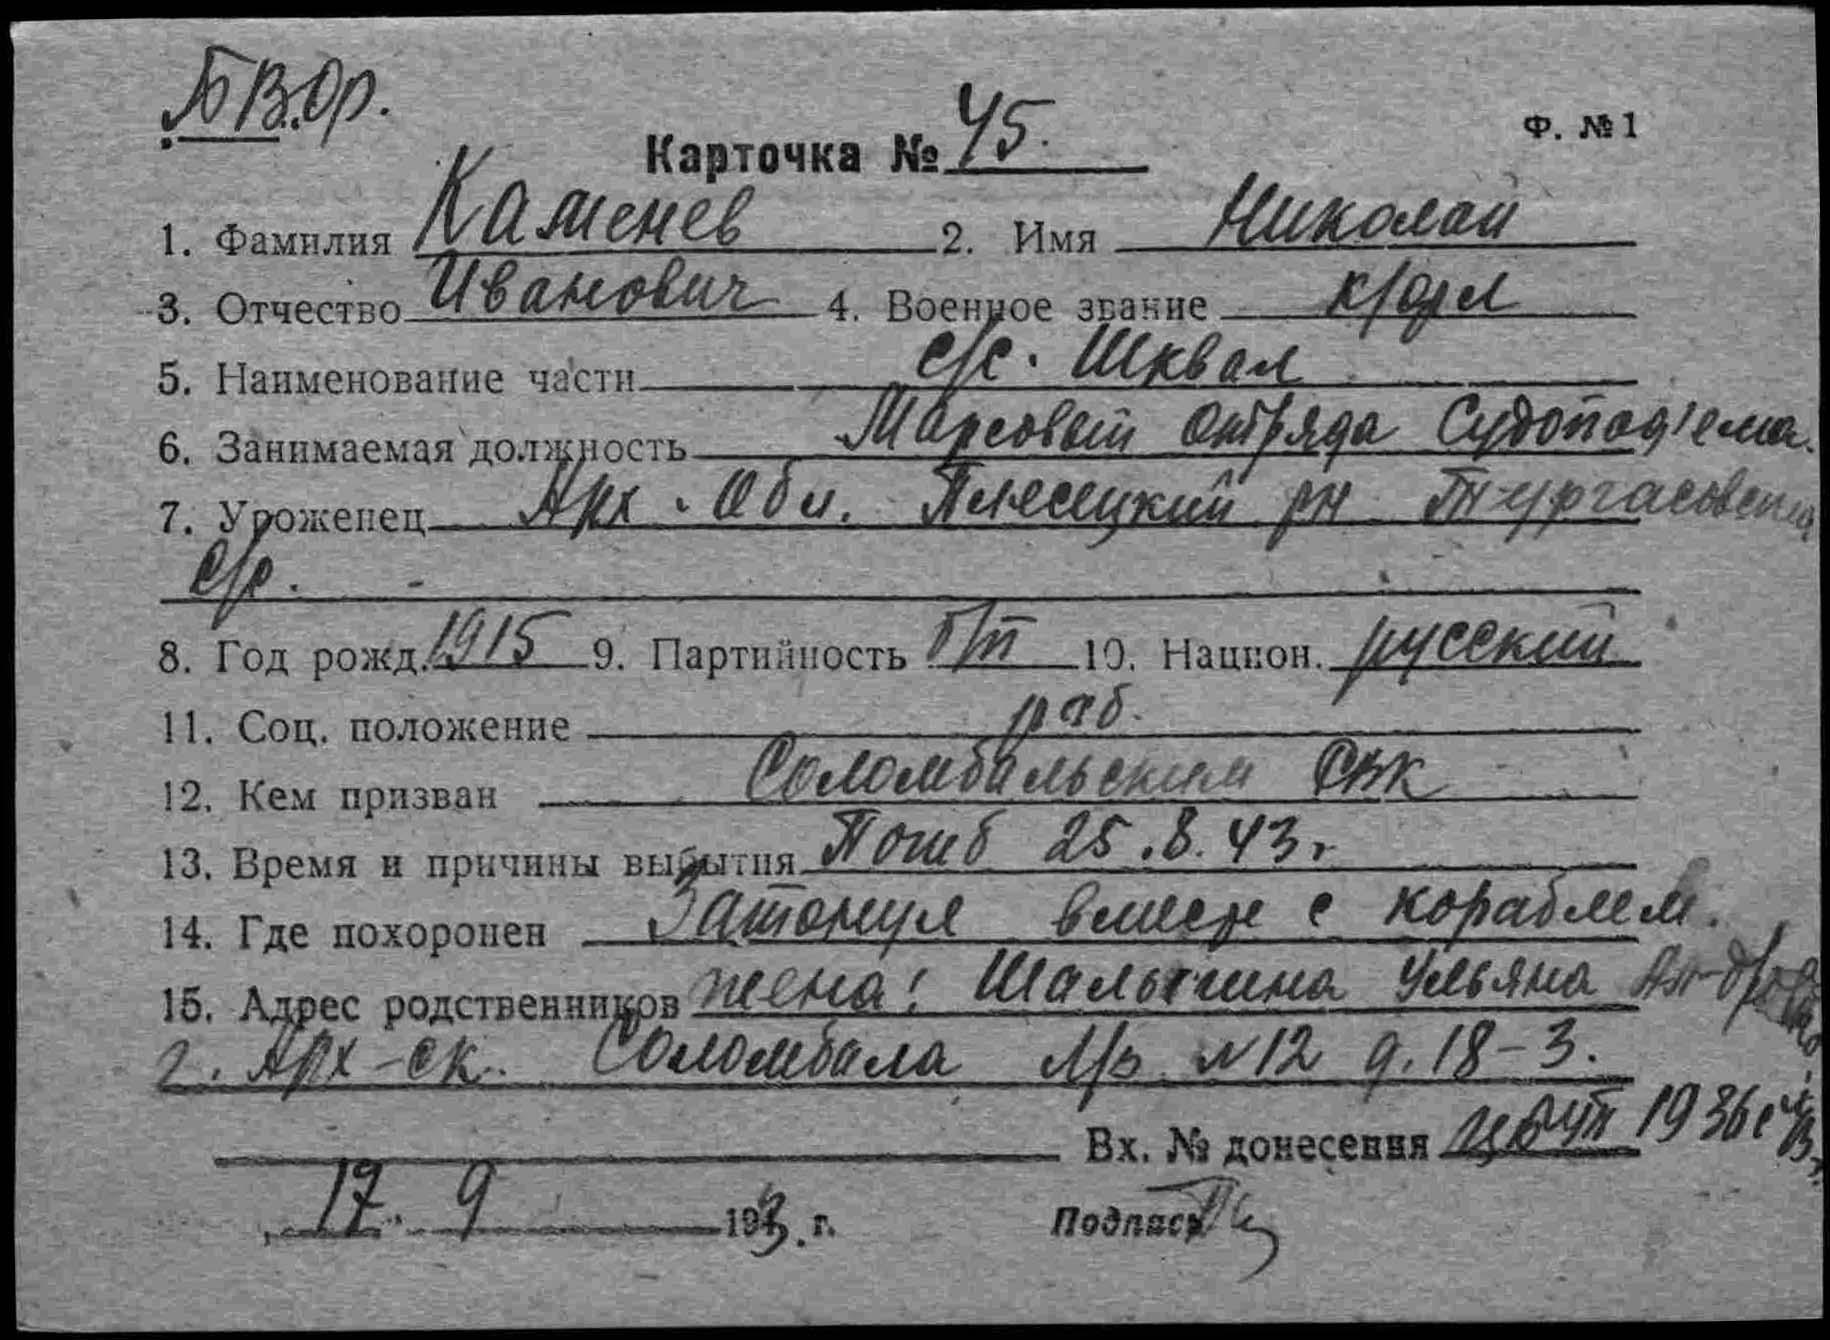 БВОр.
Ф. №1
Карточка № 45.
1. Фамилия Каменев 2. Имя Николай
3. Отчество Иванович 4. Военное звание к/фл
5. Наименование части с/с. Шквал
6. Занимаемая должность Марсовый отряда Судопод'ема.
7. Уроженец Арх. Обл. Плесецкий рн
с/с.
8. Год рожд. 1915 9. Партийность б/п 10. Национ. русский
11. Соц. положение раб.
12. Кем призван Соломбальским
13. Время и причины выбытия Погиб 25.8.43г
14. Где похоронен Затонул вместе с кораблем.
15. Адрес родственников жена: Шалыгина Ульяна
г. Арх-ск. Соломбала л/з №12 д. 18-3.
Вх. № донесения 1936с
17. 9 1943. г. Подпись